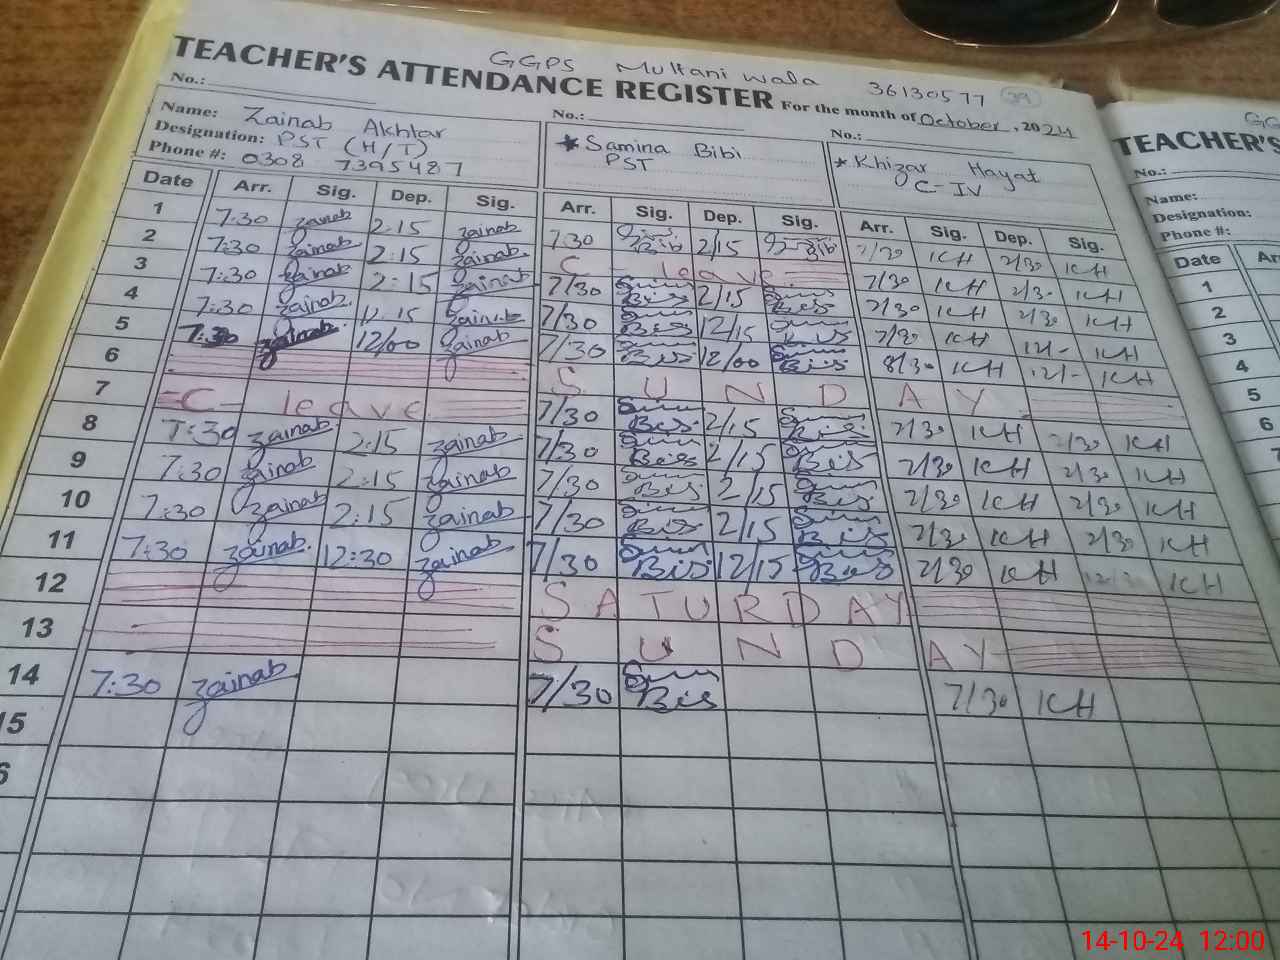 GGPS Multani Wala 36130577 39
TEACHER'S ATTENDANCE REGISTER For the month of October, 2024
No.: No.: No.:
Name: Zainab Akhtar * Samina Bibi * Khizar Hayat
Designation: PST (H/T) PST C-IV
Phone #: 0308 7395487
Date Arr. Sig. Dep. Sig. Arr. Sig. Dep. Sig. Arr. Sig. Dep. Sig.
1 7:30 zainab 2:15 zainab 7/30 2/15 7/30 KH 2/30 KH
2 7:30 zainab 2:15 zainab C - leave 7/30 KH 2/30 KH
3 7:30 zainab 2:15 zainab 7/30 2/15 7/30 KH 2/30 KH
4 7:30 zainab 12:15 zainab 7/30 12/15 7/30 KH 12/- KH
5 7:30 zainab 12/00 zainab 7/30 12/00 8/30 KH 12/- KH
6 S U N D A Y
7 C - leave 7/30 2/15 7/30 KH 2/30 KH
8 7:30 zainab 2:15 zainab 7/30 2/15 7/30 KH 2/30 KH
9 7:30 zainab 2:15 zainab 7/30 2/15 7/30 KH 2/30 KH
10 7:30 zainab 2:15 zainab 7/30 2/15 7/30 KH 2/30 KH
11 7:30 zainab 12:30 zainab 7/30 12/15 7/30 KH KH
12 S A T U R D A Y
13 S U N D A Y
14 7:30 zainab 7/30 7/30 KH
5
6
TEACHER'S
No.:
Name:
Designation:
Phone #:
Date
1
2
3
4
5
6
14-10-24 12:00